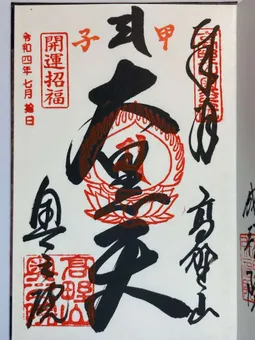 奉拝
高野山
甲子
大黒天
開運招福
奥之院
令和四年七月